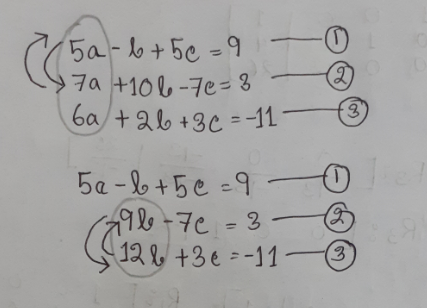 5a - b + 5c = 9 ① 
7a + 10b - 7c = 3 ②
6a + 2b + 3c = -11 ③
5a - b + 5c = 9 ①
9b - 7c = 3 ②
12b + 3c = -11 ③